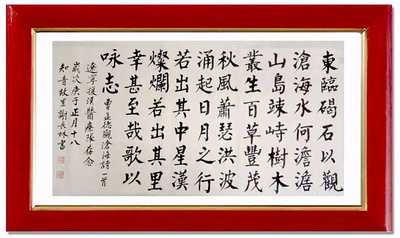 東臨碣石以觀
滄海水何澹澹
山島竦峙樹木
叢生百草豐茂
秋風蕭瑟洪波
涌起日月之行
若出其中星漢
燦爛若出其里
幸甚至哉歌以
咏志
曹孟德觀滄海詩一首
遼寧援漢醫療隊存念
歲次庚子正月十八
知青故里謝長林書